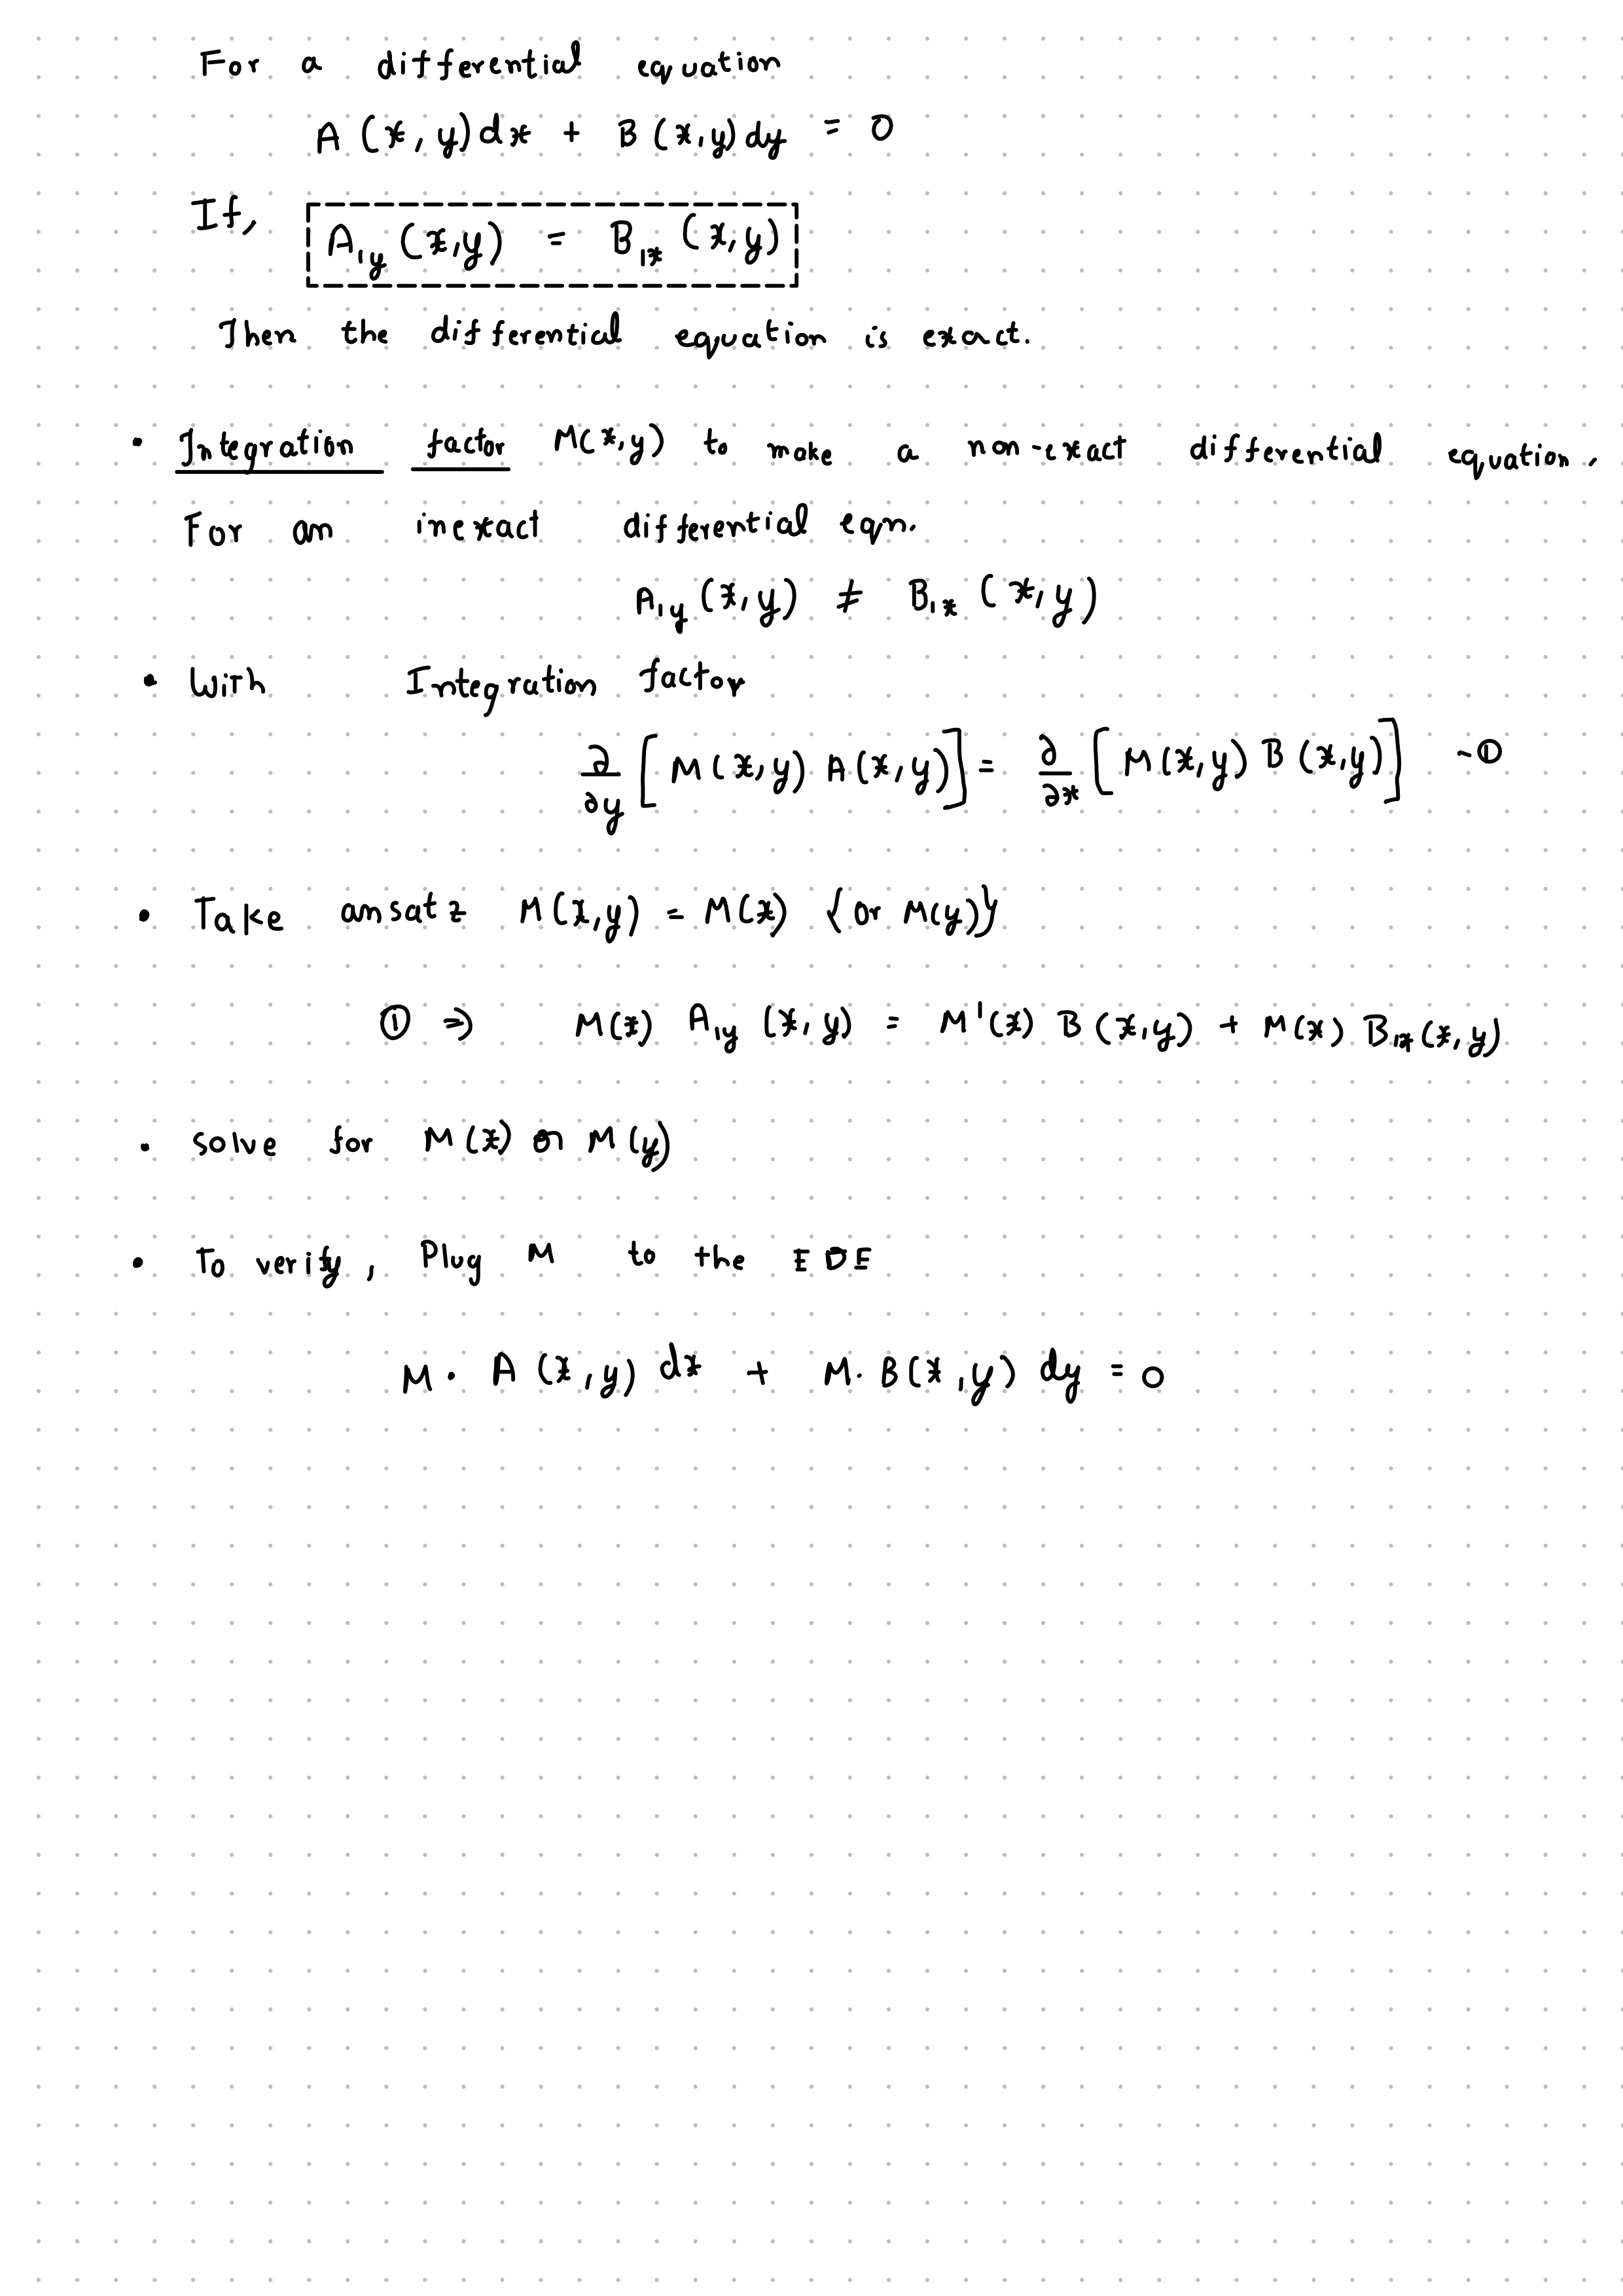 For a differential equation
A (x, y) dx + B (x,y) dy = 0
If, A,y (x,y) = B,x (x,y)
Then the differential equation is exact.
• Integration factor M(x,y) to make a non-exact differential equation.
For an inexact differential eqn.
A,y (x,y) ≠ B,x (x,y)
• With Integration factor
∂/∂y [M(x,y) A(x,y)] = ∂/∂x [M(x,y) B(x,y)] -①
• Take ansatz M(x,y) = M(x) {or M(y)}
① ⇒ M(x) A,y (x,y) = M'(x) B(x,y) + M(x) B,x(x,y)
• solve for M(x) or M(y)
• To verify, Plug M to the EDE
M. A (x,y) dx + M. B(x,y) dy = 0